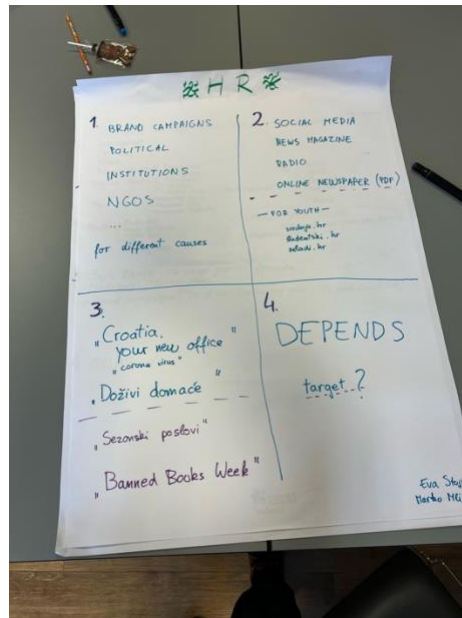 HR
1. BRAND CAMPAIGNS
POLITICAL
INSTITUTIONS
NGOS
...
for different causes
2. SOCIAL MEDIA
NEWS MAGAZINE
RADIO
ONLINE NEWSPAPER (PDF)
— FOR YOUTH —
srednja.hr
studentski.hr
mladi.hr
3.
„Croatia,
your new office"
„corona virus"
„Doživi domaće"
„Sezonski poslovi"
„Banned Books Week"
4.
DEPENDS
target?
Eva
Marko